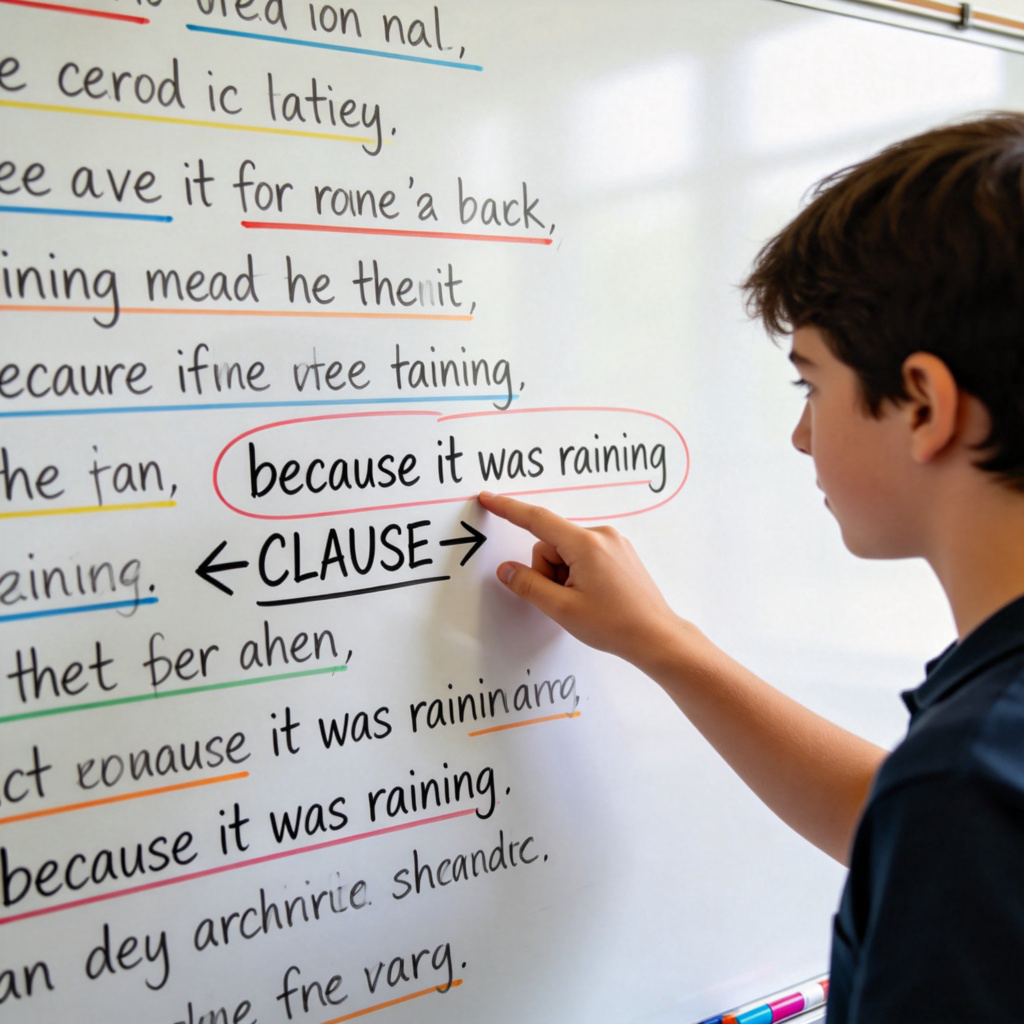 ion nal,
e cerod ic latiey.
ee ave it for rome'a back,
ining mead he thenit,
ecaure ifme vtee taining,
he tan, because it was raining
←CLAUSE→
aining.
thet fer ahen,
ct it was
because it was raining.
an dey sheandtc.
fne varg.